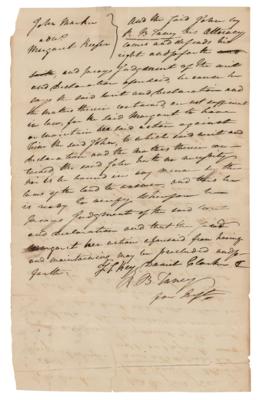 John Marker
ads
Margaret Keefer
And the said John by
R. B. Taney his Attorney
comes and defends the
and prays Judgment of the writ
and declaration aforesaid, because he
says the said writ and declaration and
the matter therein contained are not sufficient
in law, for the said Margaret to have
or maintain her said action against
him the said John, to which said writ and
declaration and the matters therein con-
tained the said John hath no necessity
nor is he bound in any manner by the
law of the land to answer, and this he
is ready to verify wherefore he
prays Judgment of the said writ
and declaration and that the said
Margaret her action aforesaid from having
and maintaining may be precluded and so
forth.
F. S. Key Daniel Clarke &
R. B. Taney
for Deft